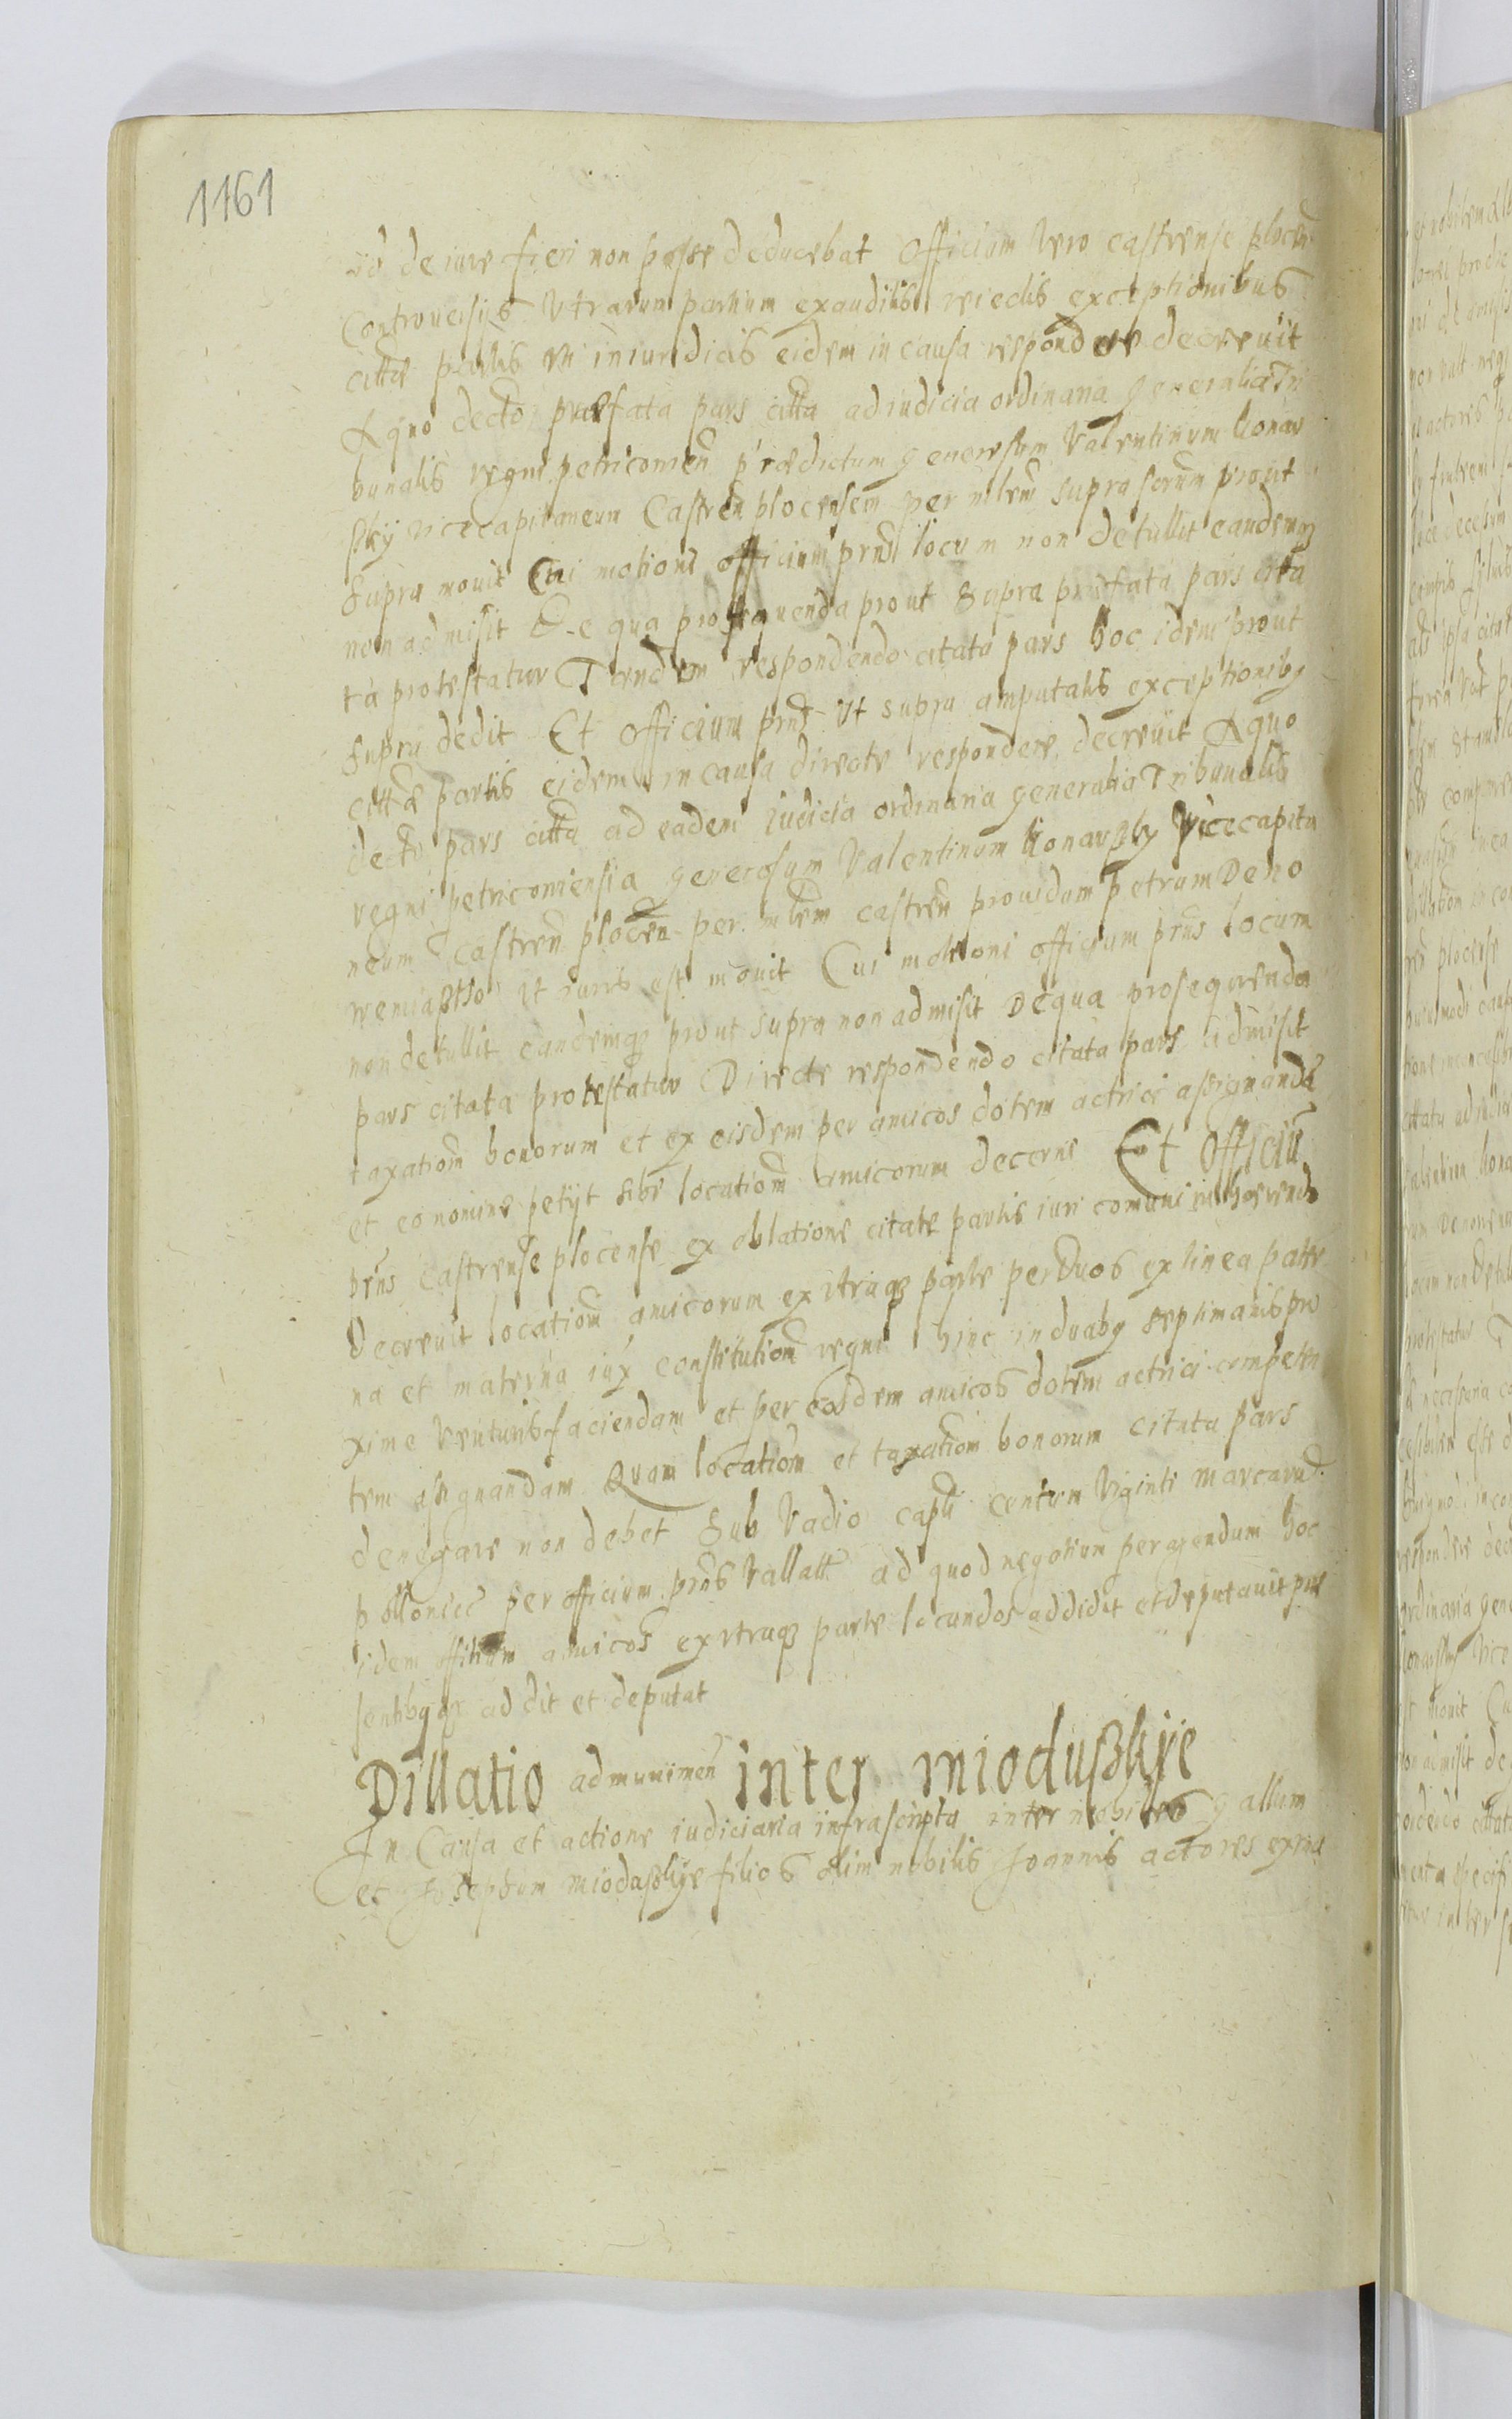 1161
id de iure fieri non posse deducebat Officium vero castrense plocen
Controuersijs Vtrarum partium exauditis reiectis exceptionibus
cittæ partis uti iniuridicis eidem in causa respondere decreuit
A quo decto præfata pars citta ad iudicia ordinaria generalia Tri
bunalis regni petricouien prædictum generosum Valentinum konar
sky vicecapitaneum Castren plocensem per mlem supra scrum prout
supra mouit Cui motioni officium prns locum non detullit eandemq
non admisit De qua prosequenda prout supra præfata pars cita
ta protestatur Tandem respondendo citata pars hoc idem prout
supra dedit Et Officium prns ut supra amputatis exceptionibq
cittæ partis eidem in causa directe respondere decreuit A quo
decto pars citta ad eadem iudicia ordinaria generalia Tribunalis
regni petricouiensia generosum Valentinum konarsky vicecapita
neum castren plocen per mlem castren prouidum petrum Deno
ut iuris est mouit Cui motioni officium prns locum
non detullit eandemq prout supra non admisit De qua prosequenda
pars citata protestatur Directe respondendo citata pars admisit
taxationem bonorum et ex eisdem per amicos dotem actrici assignandã
et eo nomine petijt sibi locationem amicorum decerni Et Officiũ
prns Castrense plocense ex oblatione citatæ partis iuri comuni inhærendo
decreuit locationem amicorum ex utraq parte per duos ex linea pater
na et materna iux constitutionem regni hinc in duabq septimanis pro
xime venturis faciendam et per eosdem amicos dotem actrici competen
tem assignandam Quam locationem et taxationem bonorum citata pars
denegare non debet Sub vadio centum viginti marcarum
per officium prns vallatt ad quod negotium peragendum hoc
idem officium amicos ex utraq parte locandos addidit et deputauit præ
sentibqq addit et deputat
Dillatio ad munimen inter mioduskije
In Causa et actione iudiciaria infrascripta inter nobiles gallum
et Josephum mioduskije filios olim nobilis Joannis actores ex una